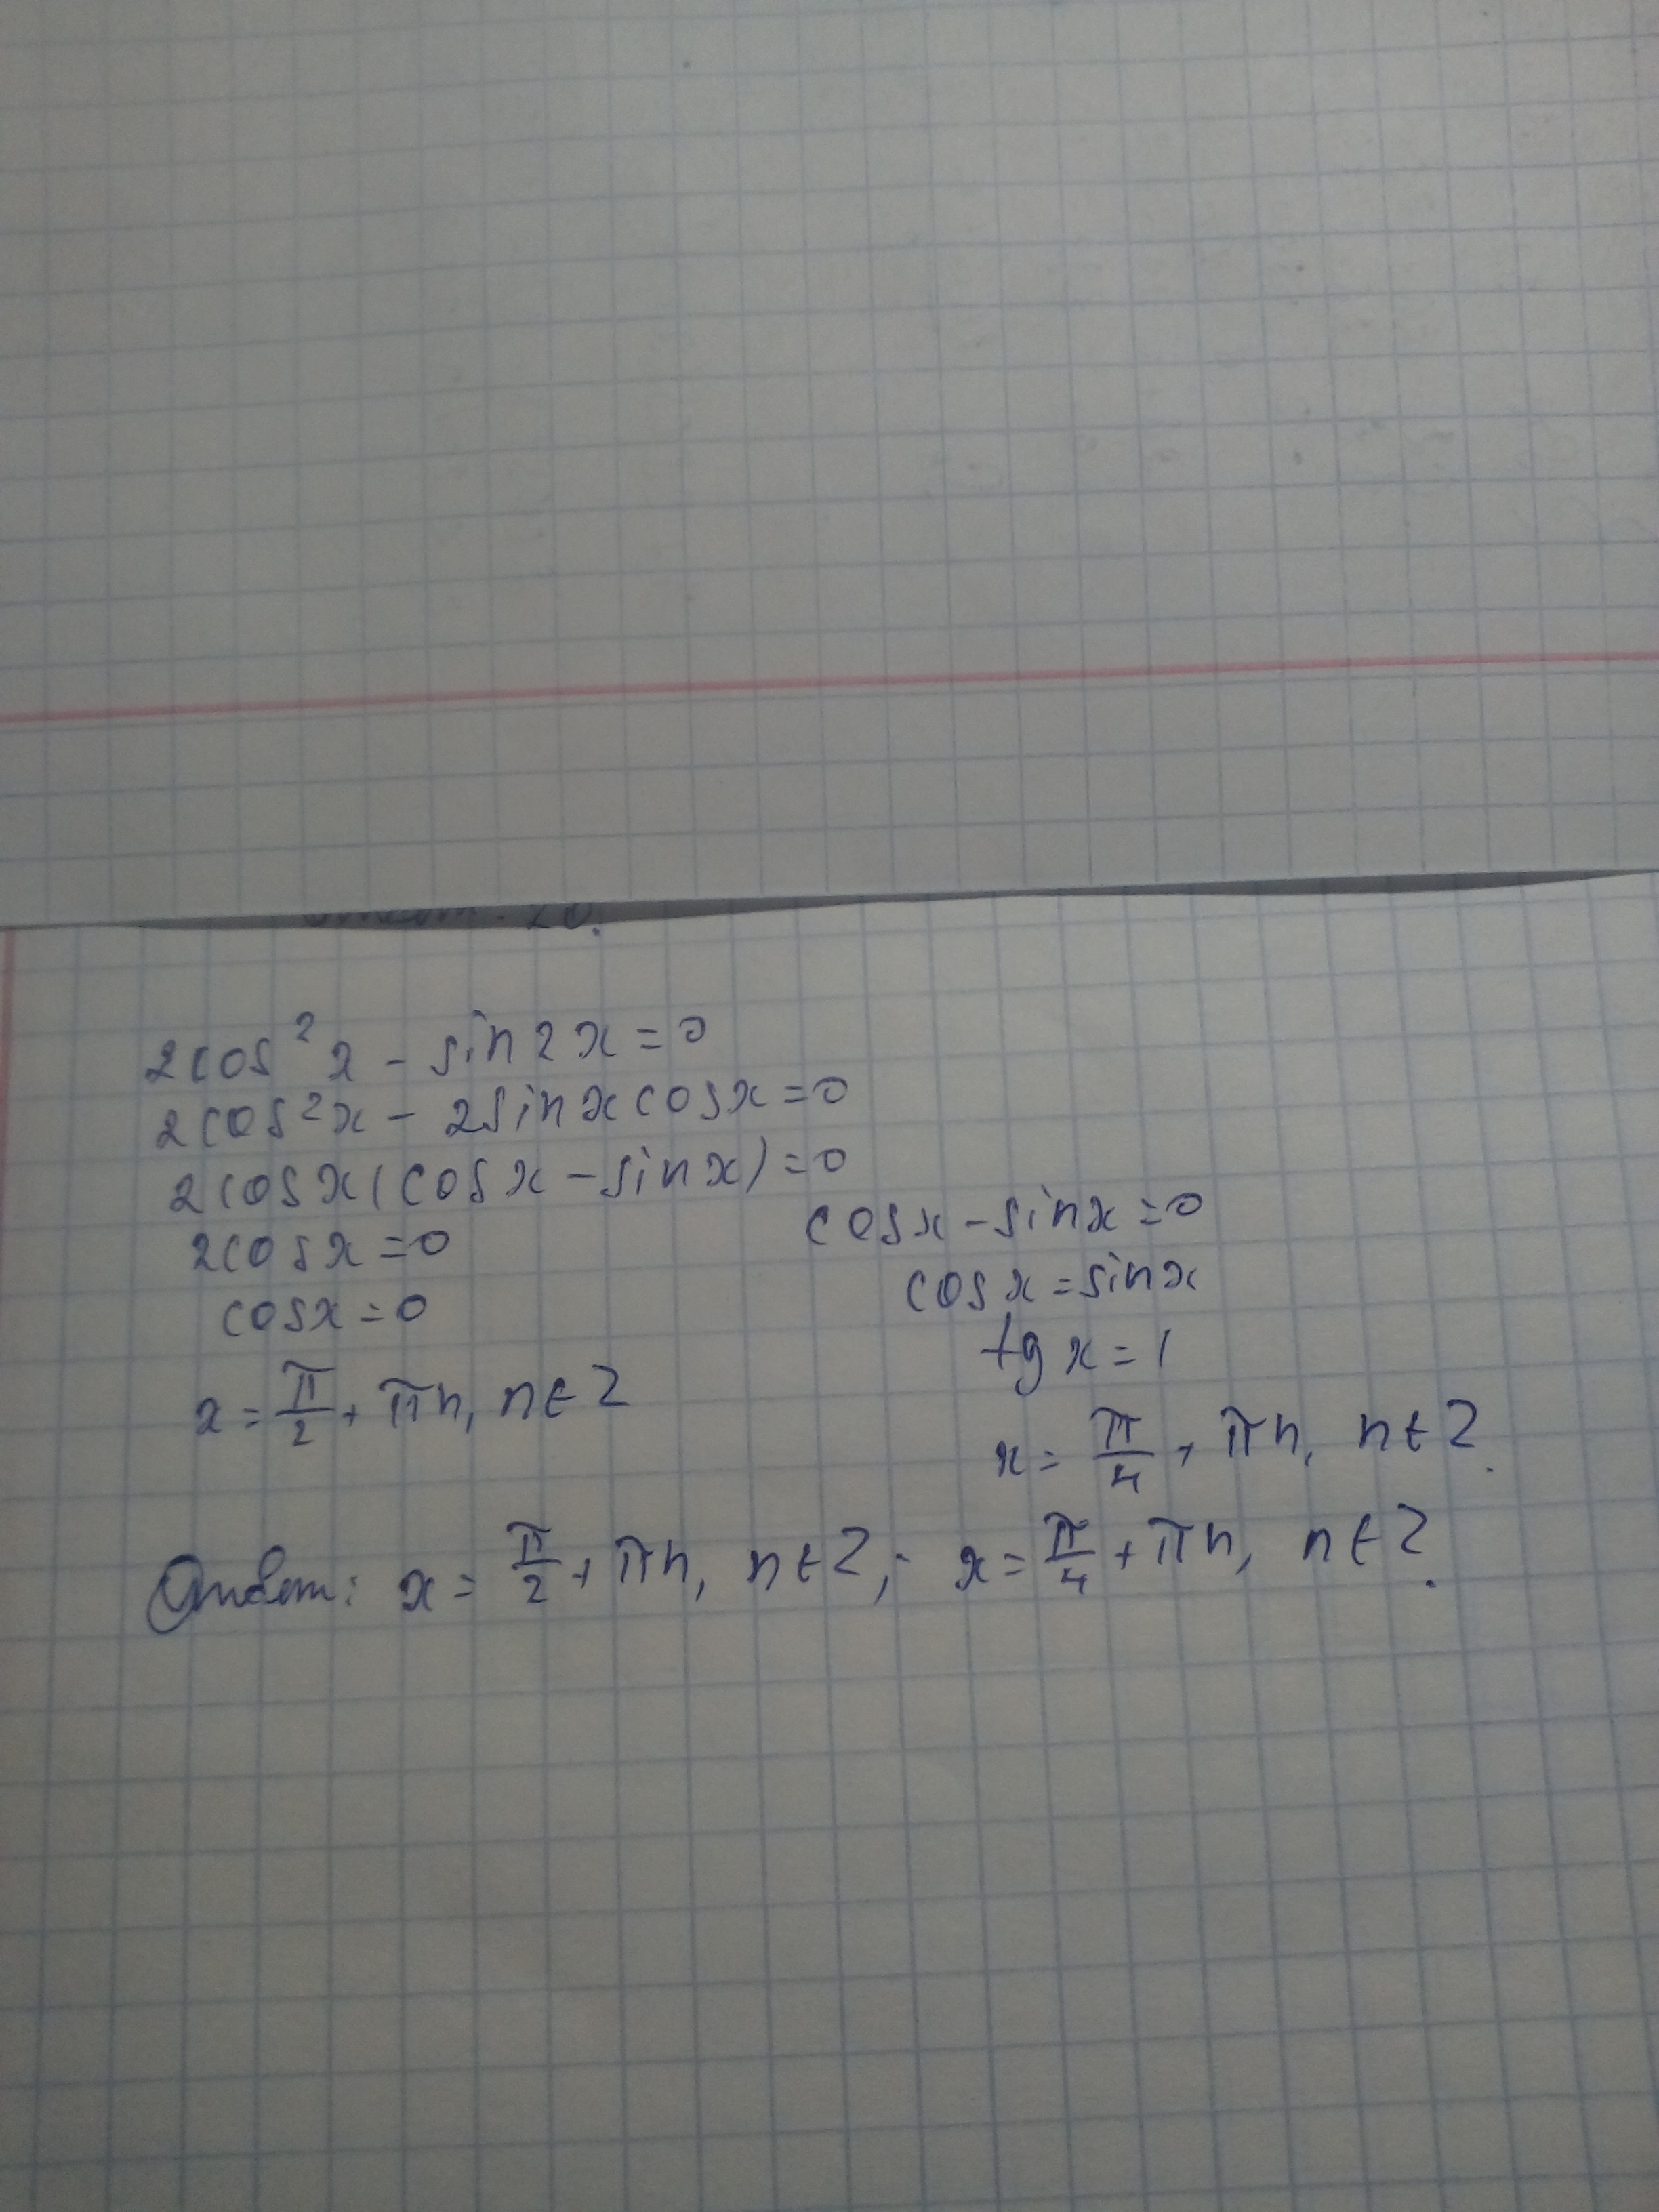 20.
2cos²x - sin2x = 0
2cos²x - 2sinxcosx = 0
2cosx(cosx - sinx) = 0
2cosx = 0
cosx = 0
x = π/2 + πn, n∈Z
cosx - sinx = 0
cosx = sinx
tgx = 1
x = π/4 + πn, n∈Z.
Ответ: x = π/2 + πn, n∈Z; x = π/4 + πn, n∈Z.